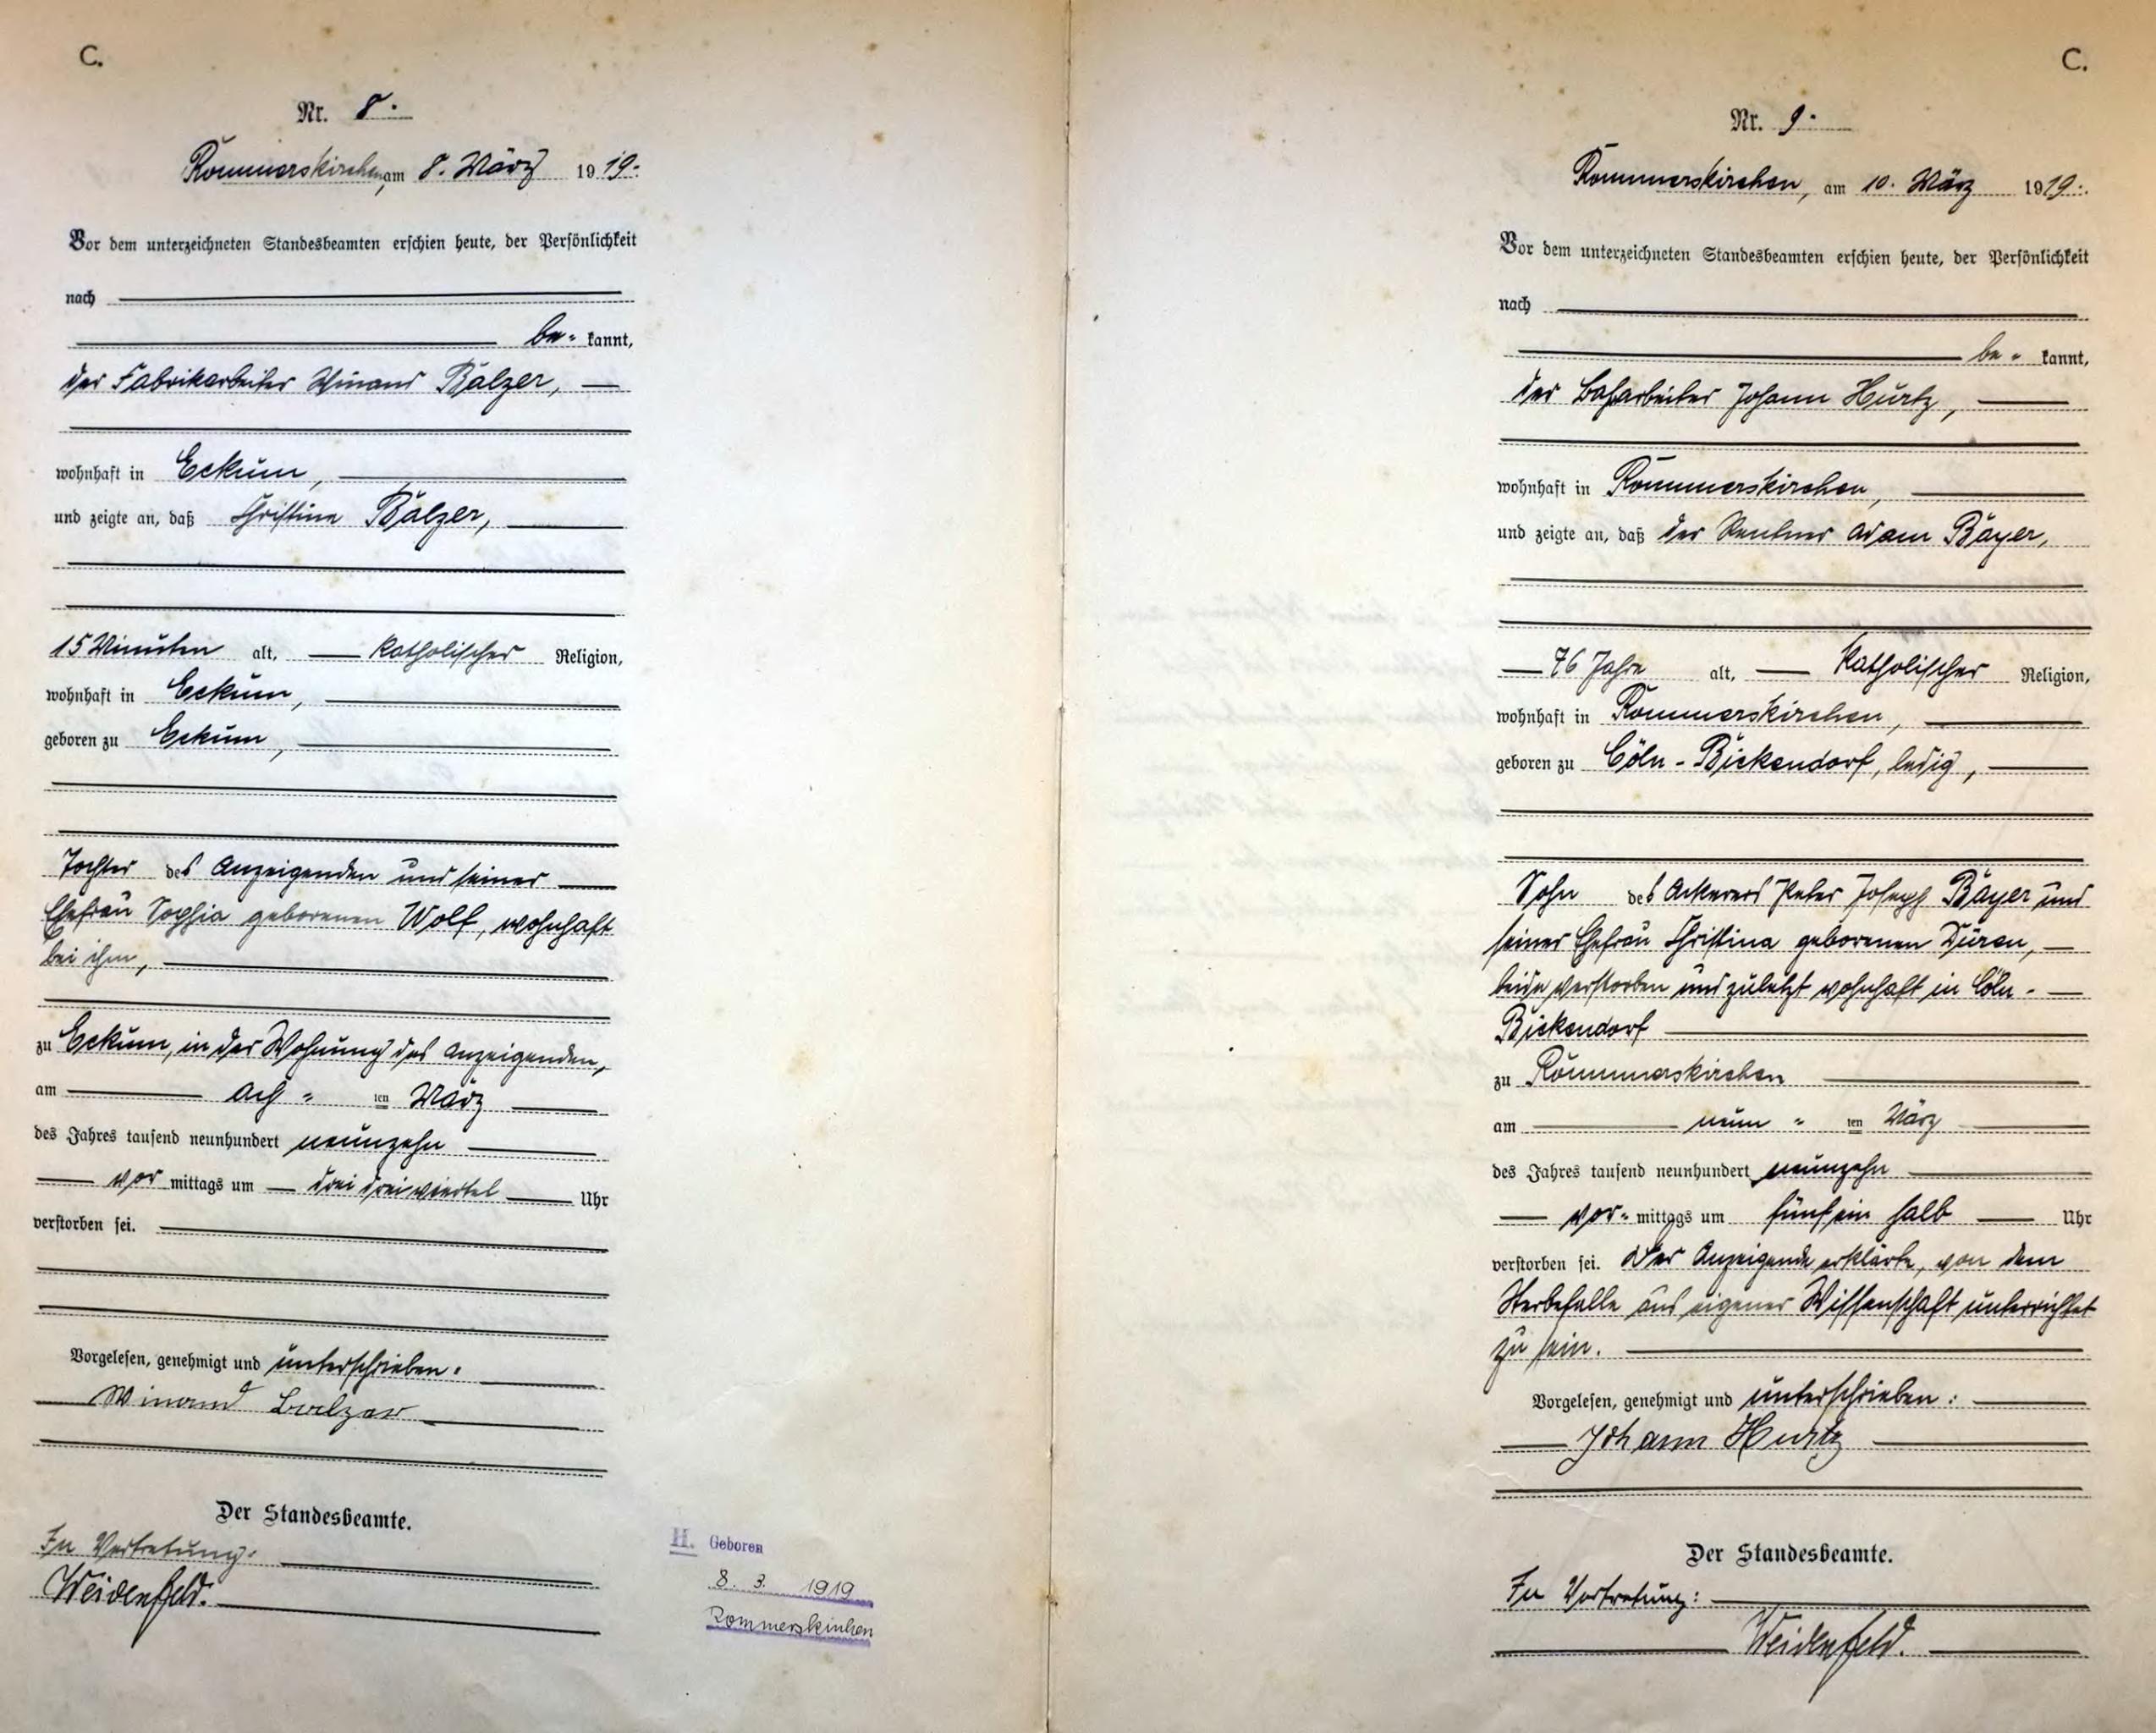 C.
Nr. 8.
Rommerskirchen, am 8. März 1919.
Vor dem unterzeichneten Standesbeamten erschien heute, der Persönlichkeit
nach
be- kannt,
der Fabrikarbeiter Winand Balzer,
wohnhaft in Eckum,
und zeigte an, daß Christina Balzer,
15 Minuten alt, katholischer Religion,
wohnhaft in Eckum,
geboren zu Eckum,
Tochter des Anzeigenden und seiner
Ehefrau Sophia geborenen Wolf, wohnhaft
bei ihm,
zu Eckum, in der Wohnung des Anzeigenden,
am ach - ten März
des Jahres tausend neunhundert neunzehn
vor mittags um drei dreiviertel Uhr
verstorben sei.
Vorgelesen, genehmigt und unterschrieben.
Winand Balzer
Der Standesbeamte.
In Vertretung:
Weidenfeld.
H. Geboren
8. 3. 1919
Rommerskirchen
C.
Nr. 9.
Rommerskirchen, am 10. März 1919.
Vor dem unterzeichneten Standesbeamten erschien heute, der Persönlichkeit
nach
be- kannt,
der Bahnarbeiter Johann Hurtz,
wohnhaft in Rommerskirchen,
und zeigte an, daß der Rentner Adam Bayer,
76 Jahre alt, katholischer Religion,
wohnhaft in Rommerskirchen,
geboren zu Cöln-Bickendorf, ledig,
Sohn des Ackerers Peter Joseph Bayer und
seiner Ehefrau Christina geborenen Düren,
beide verstorben und zuletzt wohnhaft in Cöln-
Bickendorf
zu Rommerskirchen
am neun - ten März
des Jahres tausend neunhundert neunzehn
vor- mittags um fünfein halb Uhr
verstorben sei. Der Anzeigende erklärte, von dem
Sterbefalle aus eigener Wissenschaft unterrichtet
zu sein.
Vorgelesen, genehmigt und unterschrieben:
Johann Hurtz
Der Standesbeamte.
In Vertretung:
Weidenfeld.